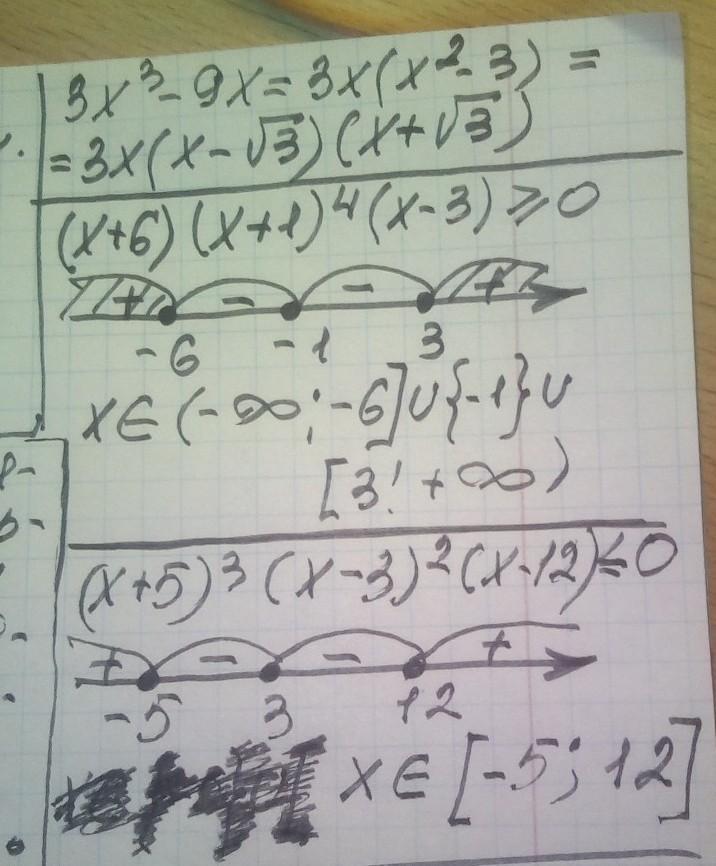 3x³ - 9x = 3x(x² - 3) =
= 3x(x - √3)(x + √3)
(x+6)(x+1)⁴(x-3) ⩾ 0
+ - - +
-6 -1 3
x ∈ (-∞; -6] ∪ {-1} ∪
[3; +∞)
(x+5)³(x-3)²(x-12) ≤ 0
+ - - +
-5 3 12
x ∈ [-5; 12]